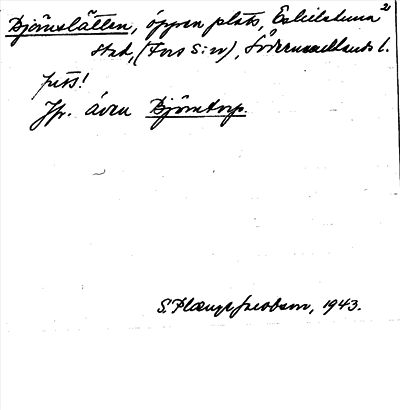 Björnslätten, öppen plats, Eskilstuna 2
stad, (Fors s:n), Södermanlands l.
Jfr. även Björntorp.
S. Plænge Jacobson, 1943.